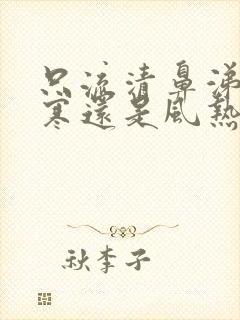 只流清鼻涕
寒還是風熱
秋李子